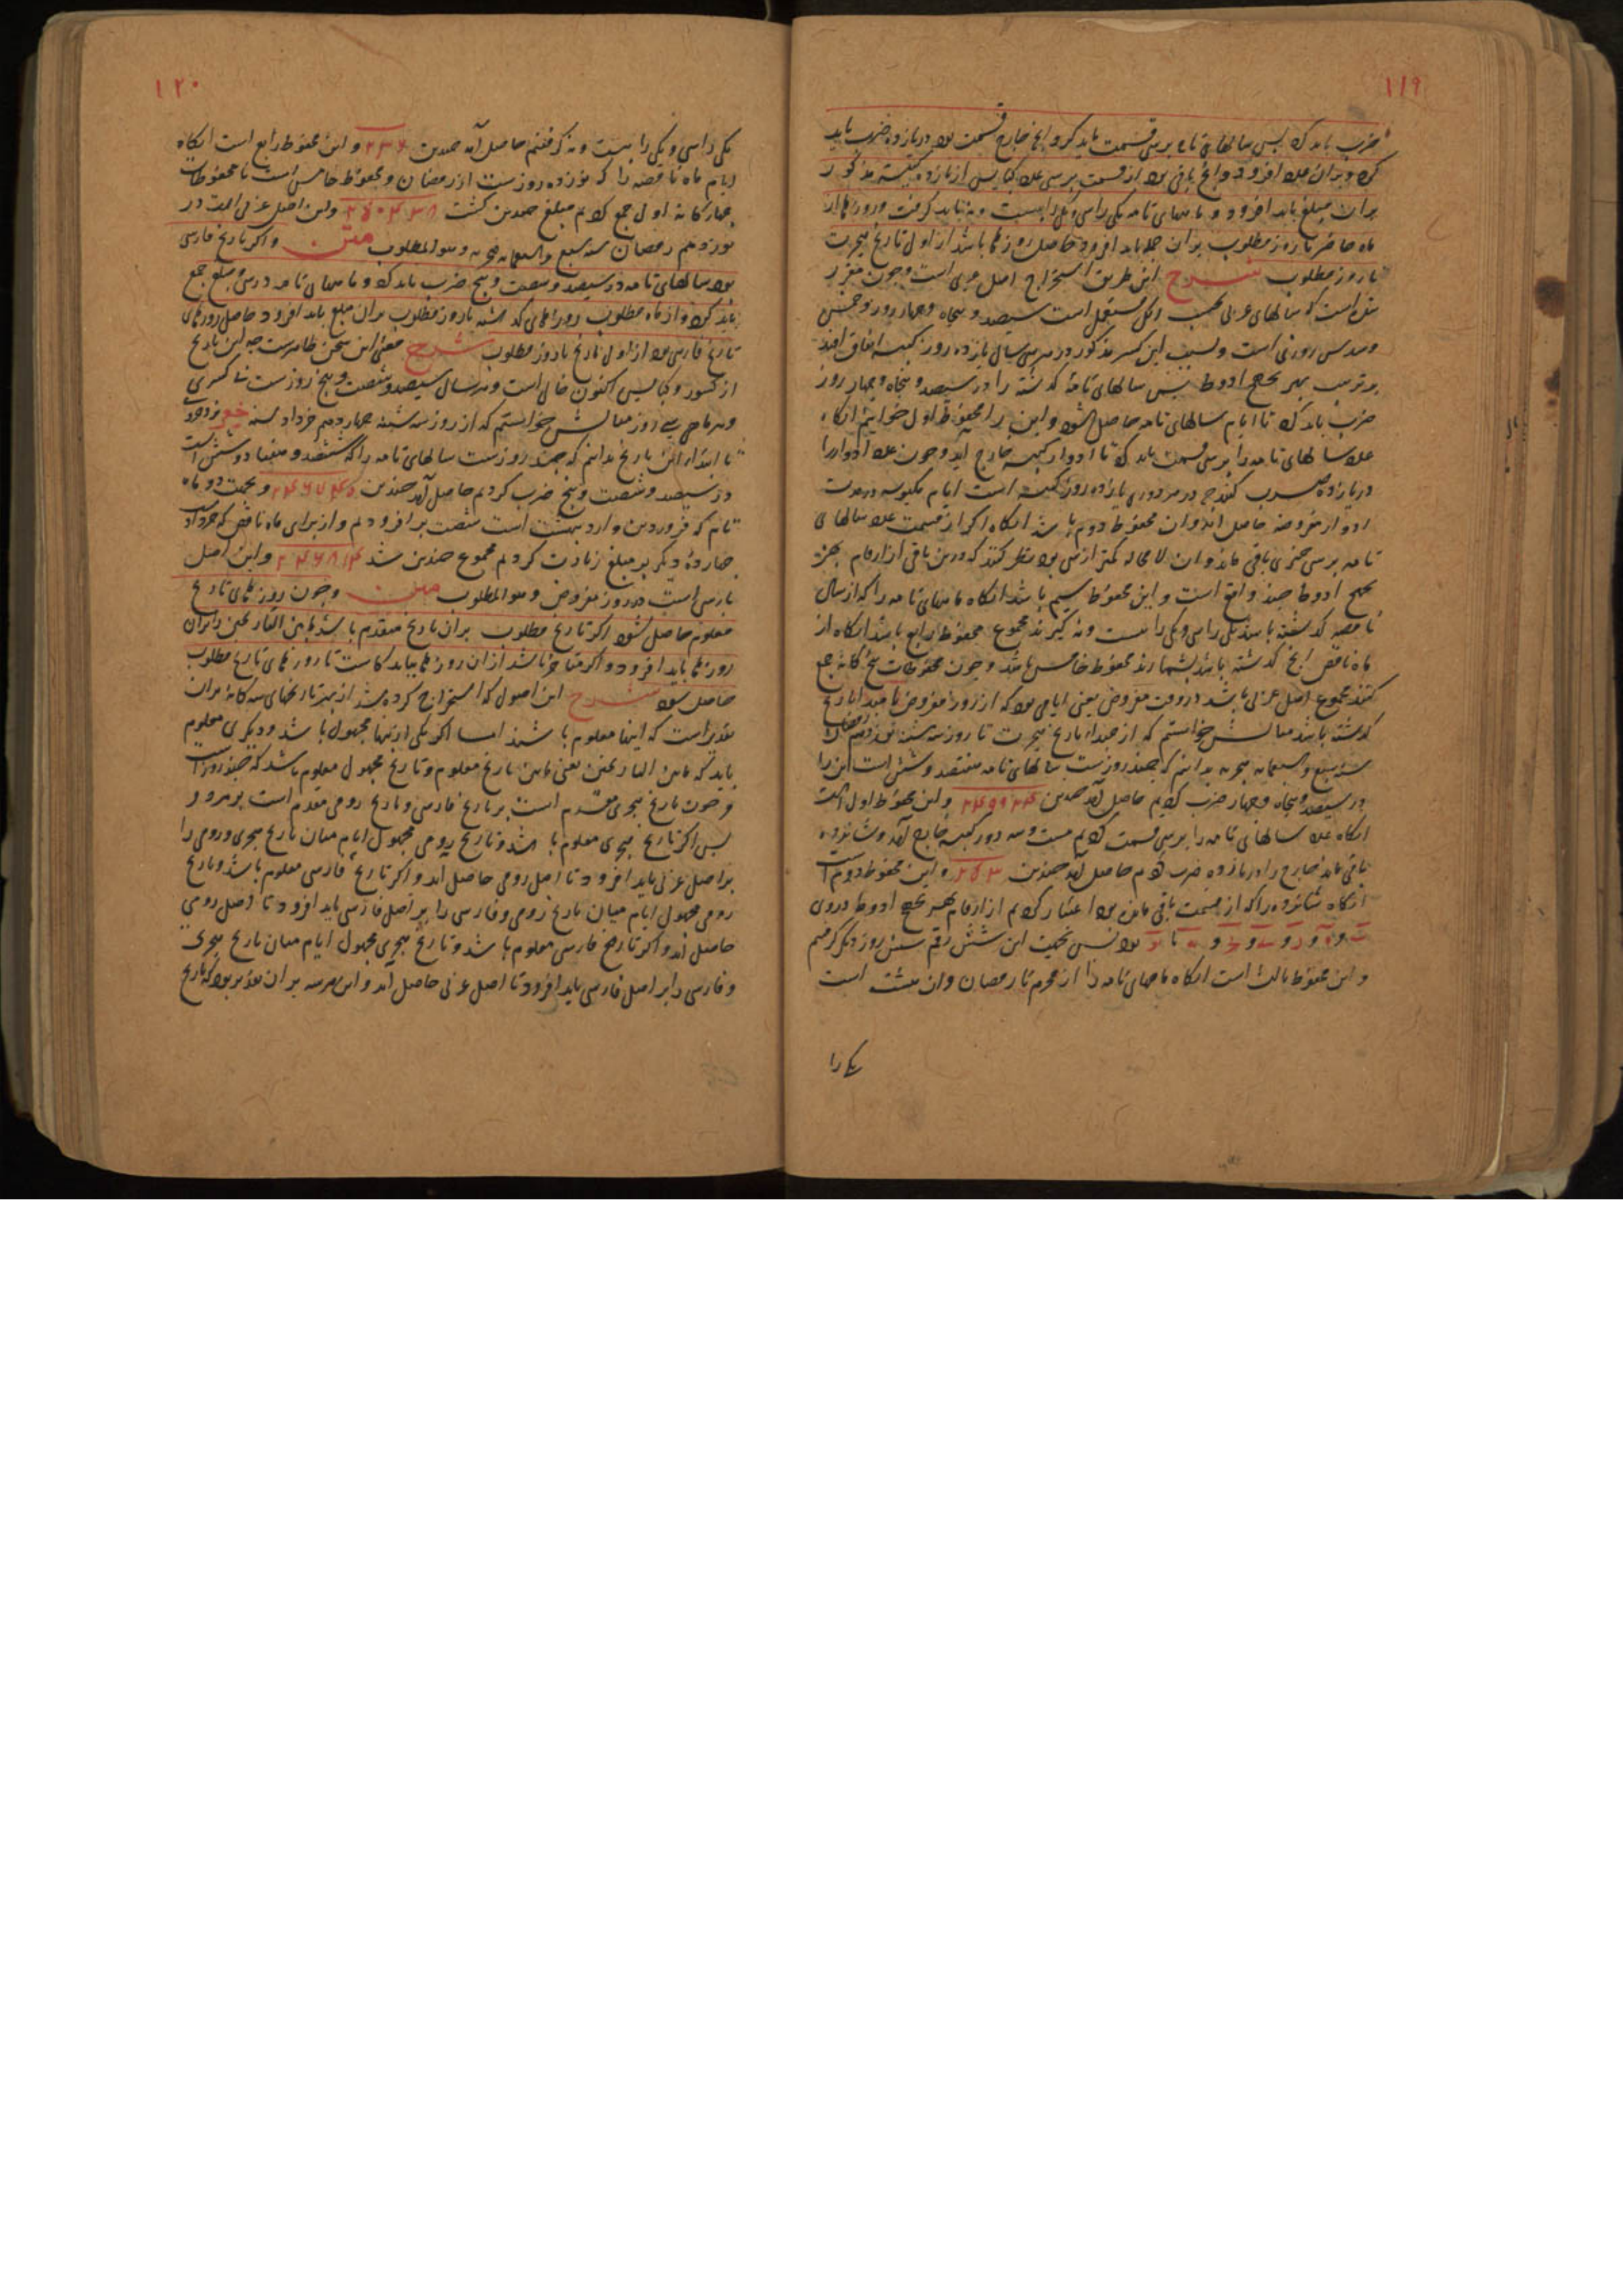 ۱۱۹
ضرب باید کرد پس سالهای تامه بر سی قسمت باید کرد و انچ خارج قسمت بود در یازده ضرب باید
کرد و بران جمله افزود و انچ باقی بود از قسمت بر سی عدد کبایس از یازده کبیسه مذکور
بران مبلغ باید افزود و ماههای تامه یکی را سی و یکی را بیست و نه باید کرفت و روزها از
ماه حاضر تا روز مطلوب بران جمله باید افزود حاصل روزها باشد از اول تاریخ هجرت
تا روز مطلوب شرح این طریق استخراج اصل عربی است و چون مقرر
شده است که سالهای عربی بحسب سیصد و پنجاه و چهار روز و خمس
و سدس روزی است و بسبب این کسر مذکور در هر سی سال یازده روز کبیسه اتفاق افتد
بر ترتیب بهز یجح ادوط پس سالهای تامه کذشته را در سیصد و پنجاه و چهار روز
ضرب باید کرد تا ایام سالهای تامه حاصل شود و این را محفوظ اول خوانیم انکاه
عدد سالهای تامه را بر سی قسمت باید کرد تا ادوار کبیسه خارج اید و چون عدد ادوار را
در یازده ضرب کنند چه در هر دوری یازده روز کبیسه است ایام مکبوسه در مدت
ادوار مفروضه حاصل اید و ان محفوظ دوم باشد انکاه اکر از قسمت عدد سالهای
تامه بر سی چیزی باقی ماند و ان لا محاله کمتر از سی بود نظر کنند که درین باقی از ارقام بهز
یجح ادوط چند واقع است و این محفوظ سیم باشد انکاه ماههای تامه را که از سال
ناقصه کذشته باشد یکی را سی و یکی را بیست و نه کیرند مجموع محفوظ رابع باشد انکاه از
ماه ناقص انچ کذشته باشد بشمارند محفوظ خامس باشد و چون محفوظات پنج کانه جمع
کنند مجموع اصل عربی باشد در وقت مفروض یعنی ایامی بود که از روز مفروض تا مبدا تاریخ
کذشته باشد مثالش خواستیم که از مبداء تاریخ هجرت تا روز سه شنبه نوزدهم رمضان
سنه سبع و سبعمایه هجریه بدانیم که چند روزست سالهای تامه هفتصد و شش است این را
در سیصد و پنجاه و چهار ضرب کردیم حاصل آمد چندین ۲۴۹۹۲۴ و این محفوظ اول است
انکاه عدد سالهای تامه را بر سی قسمت کردیم بیست و سه دور کبیسه خارج آمد و شانزده
باقی ماند خارج را در یازده ضرب کردیم حاصل آمد چندین ۲۵۳ و این محفوظ دوم است
انکاه شانزده را که از قسمت باقی مانده بود اعتبار کردیم از ارقام بهز یجح ادوط در وی
بود پس بجهت این شش رقم شش روز دیکر کرفتیم
و این محفوظ ثالث است انکاه ماههای تامه را از محرم تا رمضان و ان هشت است
یکی را
۱۲۰
یکی را سی و یکی را بیست و نه کرفتیم حاصل آمد چندین ۲۳۶ و این محفوظ رابع است انکاه
ایام ماه ناقصه را که نوزده روزست از رمضان و محفوظ خامس است با محفوظات
چهارکانه اول جمع کردیم مبلغ چندین کشت ۲۵۰۴۳۸ و این اصل عربی است در
نوزدهم رمضان سنه سبع و سبعمایه هجریه و هو المطلوب متن و اکر تاریخ فارسی
بود سالهای تامه در سیصد و شصت و پنج ضرب باید کرد و ماههای تامه در سی و مبلغ جمع
باید کرد و از ماه مطلوب روزهای کذشته تا روز مطلوب بران مبلغ باید افزود حاصل روزهای
تاریخ فارسی بود از اول تاریخ تا روز مطلوب شرح معنی این سخن ظاهرست چه این تاریخ
از کسور و کبایس اکنون خالی است و هر سال سیصد و شصت و پنج روزست بی کسری
و هر ماهی سی روز مثالش خواستیم که از روز سه شنبه چهاردهم خرداد سنه خو یزدجرد
تا ابتداء این تاریخ بدانیم که چند روزست سالهای تامه را که ششصد و هفتاد و شش است
در سیصد و شصت و پنج ضرب کردیم حاصل آمد چندین ۲۴۶۷۴۰ و بجهت دو ماه
تام که فروردین و اردبهشت است شصت بر افزودیم و از برای ماه ناقص که خرداد
چهارده دیکر بر مبلغ زیادت کردیم مجموع چندین شد ۲۴۶۸۱۴ و این اصل
پارسی است در روز مفروض و هو المطلوب متن و چون روزهای تاریخ
معلوم حاصل شود اکر تاریخ مطلوب بران تاریخ متقدم باشد مابین التاریخین را بران
روزها باید افزود و اکر متاخر باشد از ان روزها بباید کاست تا روزهای تاریخ مطلوب
حاصل شود شرح این اصول که استخراج کرده شد از بهر تاریخهای سه کانه بران
تقدیر است که اینها معلوم باشند اما اکر یکی از اینها مجهول باشد و دیکری معلوم
باید که مابین التاریخین یعنی مابین تاریخ معلوم و تاریخ مجهول معلوم باشد که چند روز است
و چون تاریخ هجری متقدم است بر تاریخ فارسی و تاریخ رومی مقدم است بر هر دو
پس اکر تاریخ هجری معلوم باشد و تاریخ رومی مجهول ایام میان تاریخ هجری و رومی را
بر اصل عربی باید افزود تا اصل رومی حاصل اید و اکر تاریخ فارسی معلوم باشد و تاریخ
رومی مجهول ایام میان تاریخ رومی و فارسی را بر اصل فارسی باید افزود تا اصل رومی
حاصل اید و اکر تاریخ فارسی معلوم باشد و تاریخ هجری مجهول ایام میان تاریخ هجری
و فارسی را بر اصل فارسی باید افزود تا اصل عربی حاصل آید و این هر سه بران تقدیر بود که تاریخ